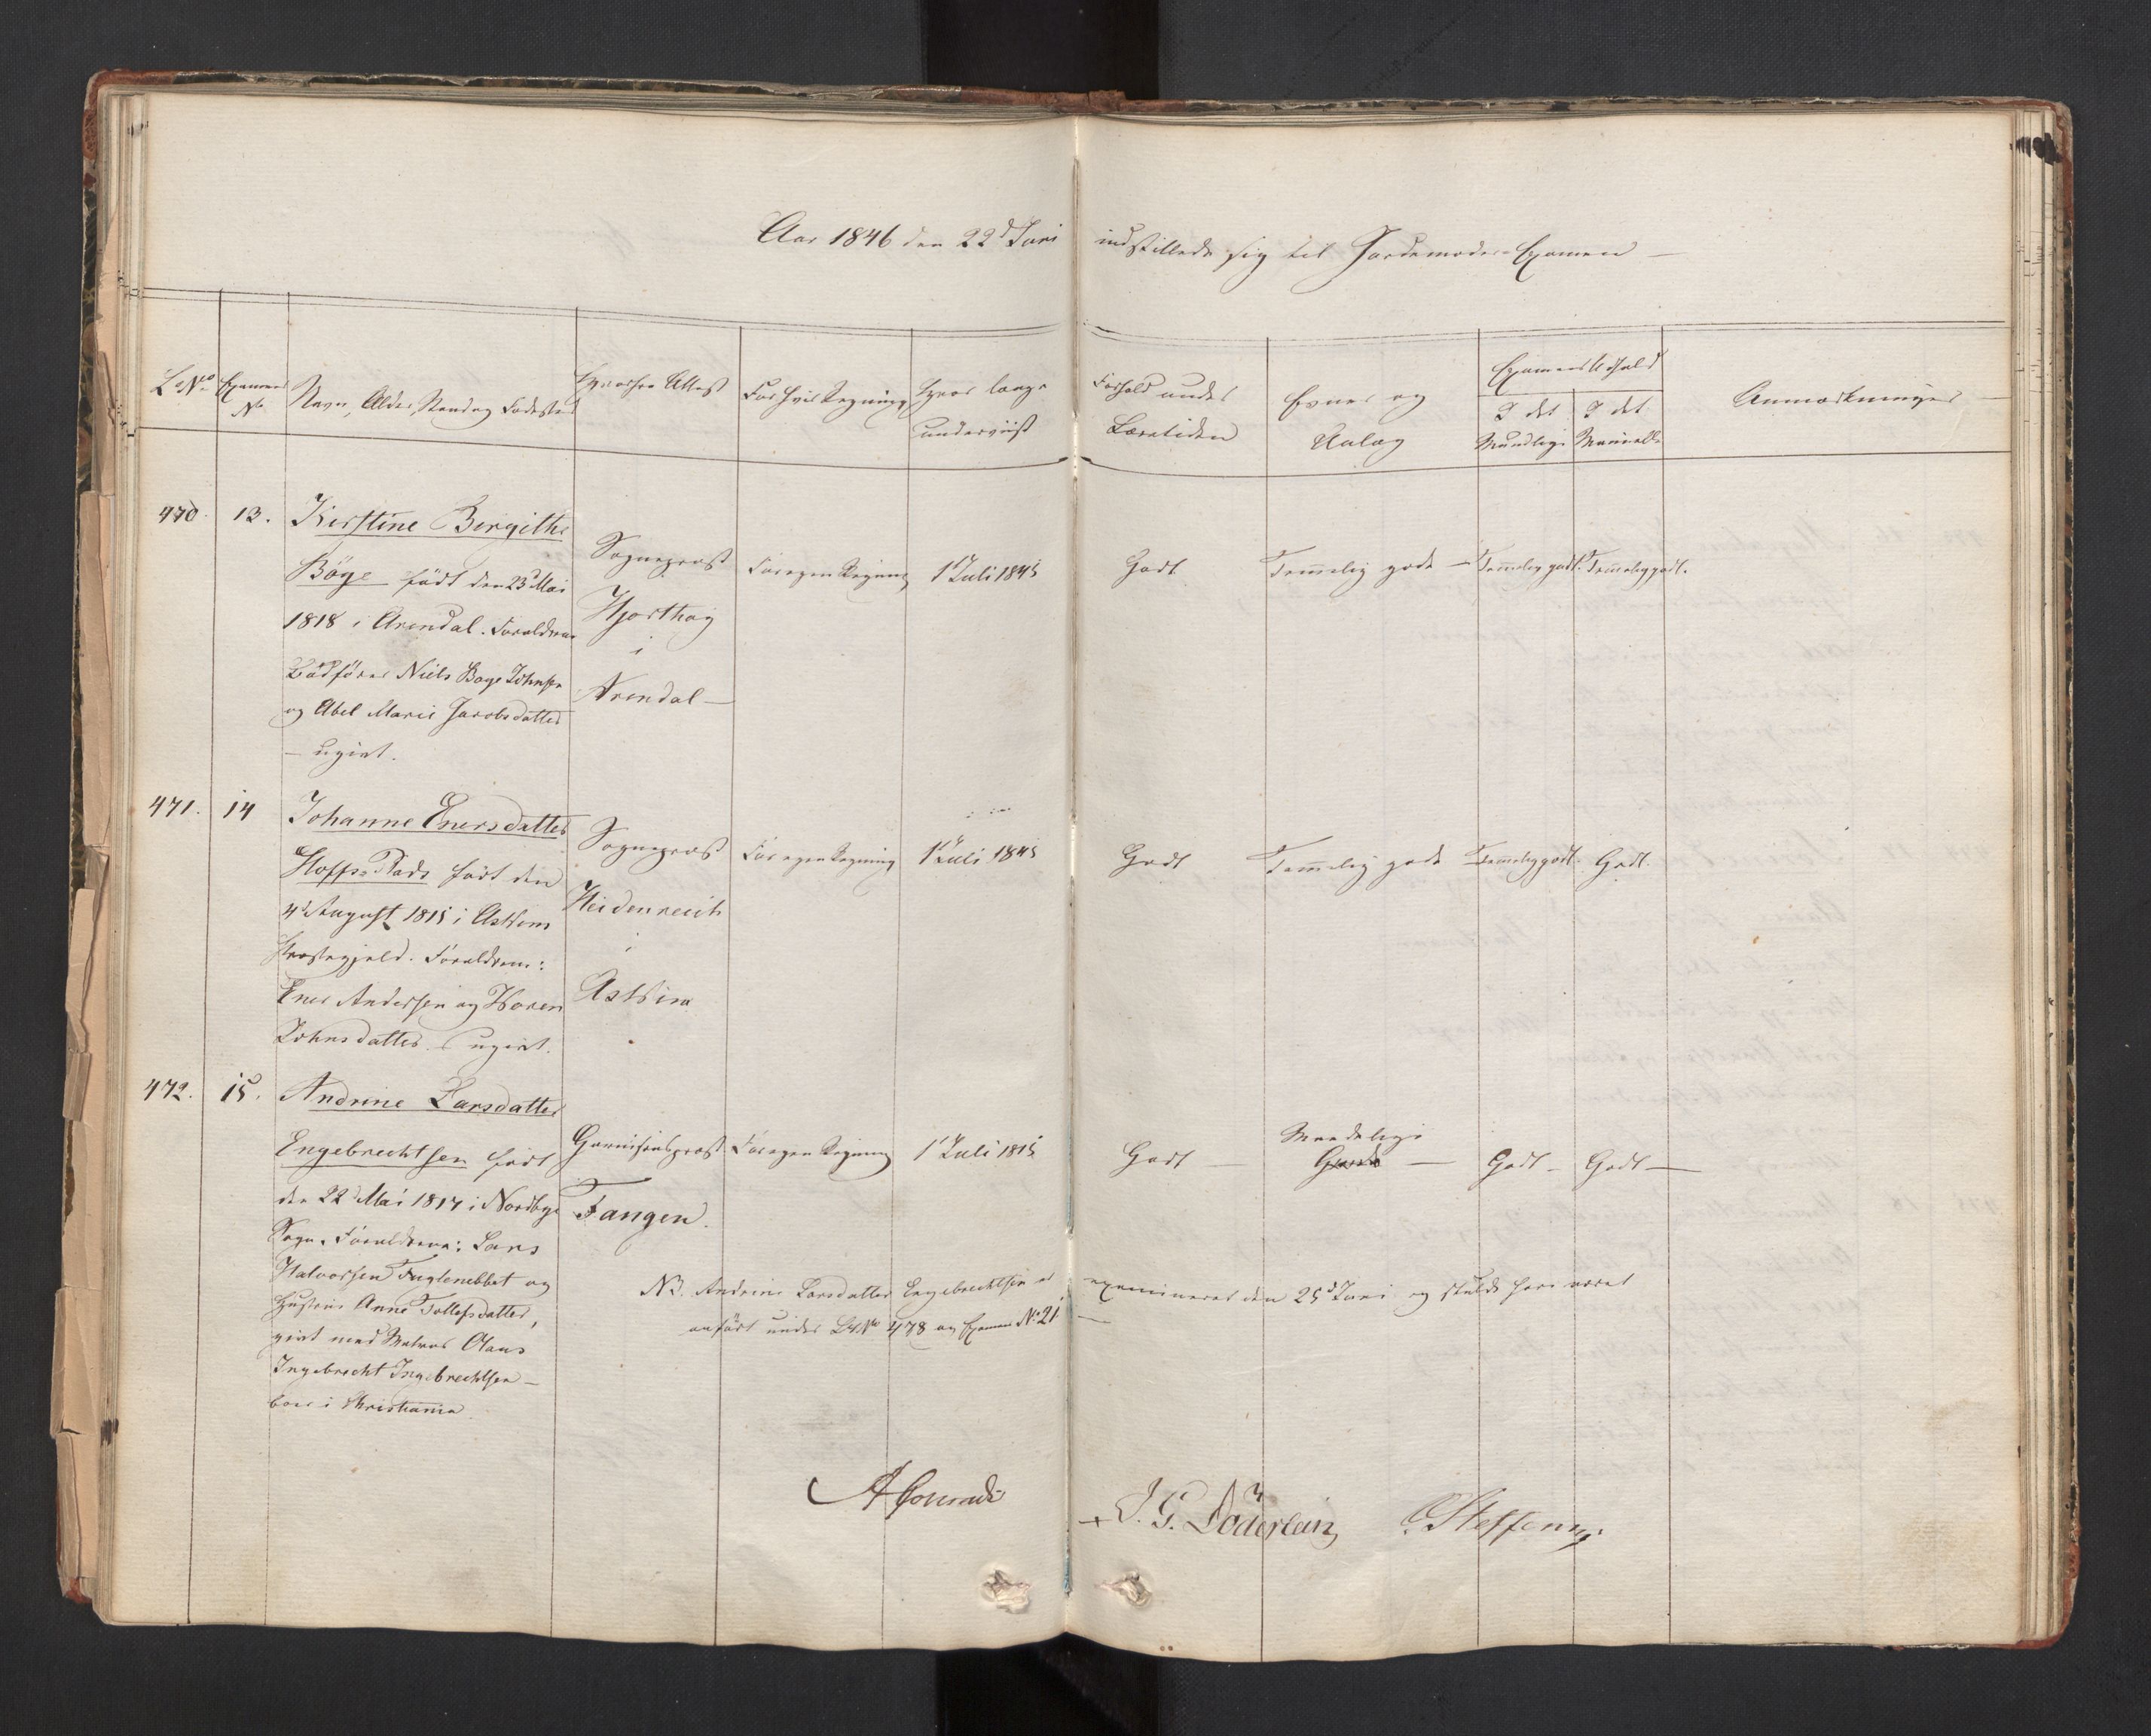 Aar 1846 den 22d Juni indstillede sig til Jordemoder-Examen —
L. No
Examens No
Navn, Alder, Stand og Fødested
Hvorfra Attest
For hvis Regning
Hvor længe underviist
Forhold under Læretiden
Evner og Anlæg
Examens Udfald
I det Mundtlige
I det Manuelle
Anmærkninger
470. 13. Kirstine Birgithe
Böye født den 23d Mai
1818 i Arendal. Forældrene
Niels Boye Johnsen
og Abel Marie Jacobsdatter
— ugivt.
Sognepræst
Hjorthøy
i
Arendal —
For egen Regning
1 Juli 1845
Godt
Temmelig gode —
Temmelig godt.
Temmelig godt.
471. 14 Johanne Enersdatter
Hoffs-Rads født den
4d August 1815 i Askim
Præstegjeld. Forældrene:
Ener Andersen og Maren
Johnsdatter — ugivt.
Sognepræst
Heidenreich
i
Askim
For egen Regning
1 Juli 1845
Godt
Temmelig gode
Temmelig godt.
Godt.
472. 15. Andrine Larsdatter
Engebrechtsen født
den 22d Mai 1817 i Nordbye
Sogn. Forældrene: Lars
Halvorsen Fuglenebbet og
Hustrue Anne Tollefsdatter,
givt med Matros Olaus
Ingebrecht Ingebrechtsen —
boer i Christiania.
Garnisonspræst
Tangen.
For egen Regning
1 Juli 1845
Godt —
Maadelige
Gode —
Godt —
Godt —
NB. Andrine Larsdatter Engebrechtsen er examineret den 25d Juni og skulde have været
anført under L. No 478 og Examens No 21 —
A Conradi
J. G. Döderlein
C. Steffens.